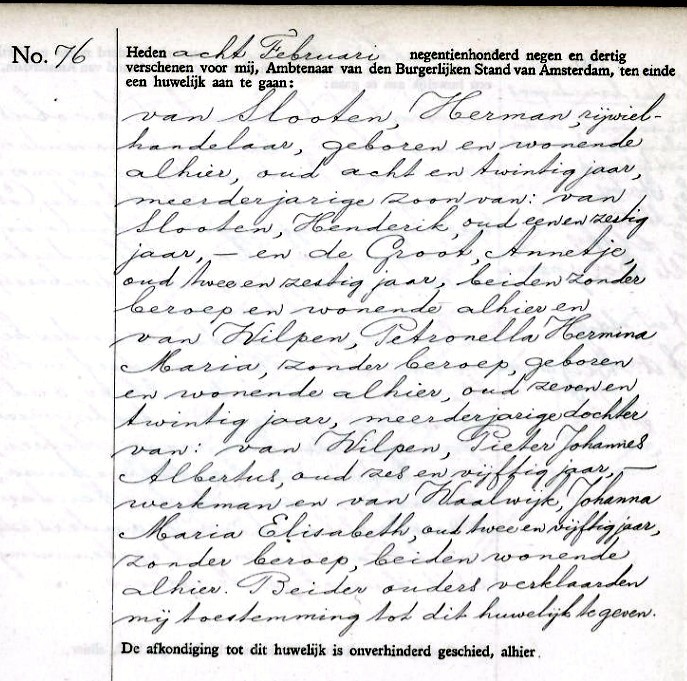 No. 76
Heden acht Februari negentienhonderd negen en dertig
verschenen voor mij, Ambtenaar van den Burgerlijken Stand van Amsterdam, ten einde
een huwelijk aan te gaan:
van Slooten, Herman, rijwiel-
handelaar, geboren en wonende
alhier, oud acht en twintig jaar,
meerderjarige zoon van: van
Slooten, Henderik, oud een en zestig
jaar, — en de Groot, Annetje,
oud twee en zestig jaar, beiden zonder
beroep en wonende alhier en
van Wilpen, Petronella Hermina
Maria, zonder beroep, geboren
en wonende alhier, oud zeven en
twintig jaar, meerderjarige dochter
van: van Wilpen, Pieter Johannes
Albertus, oud zes en vijftig jaar, —
werkman en van Waalwijk, Johanna
Maria Elisabeth, oud twee en vijftig jaar,
zonder beroep, beiden wonende
alhier. Beider ouders verklaarden
mij toestemming tot dit huwelijk te geven.
De afkondiging tot dit huwelijk is onverhinderd geschied, alhier.